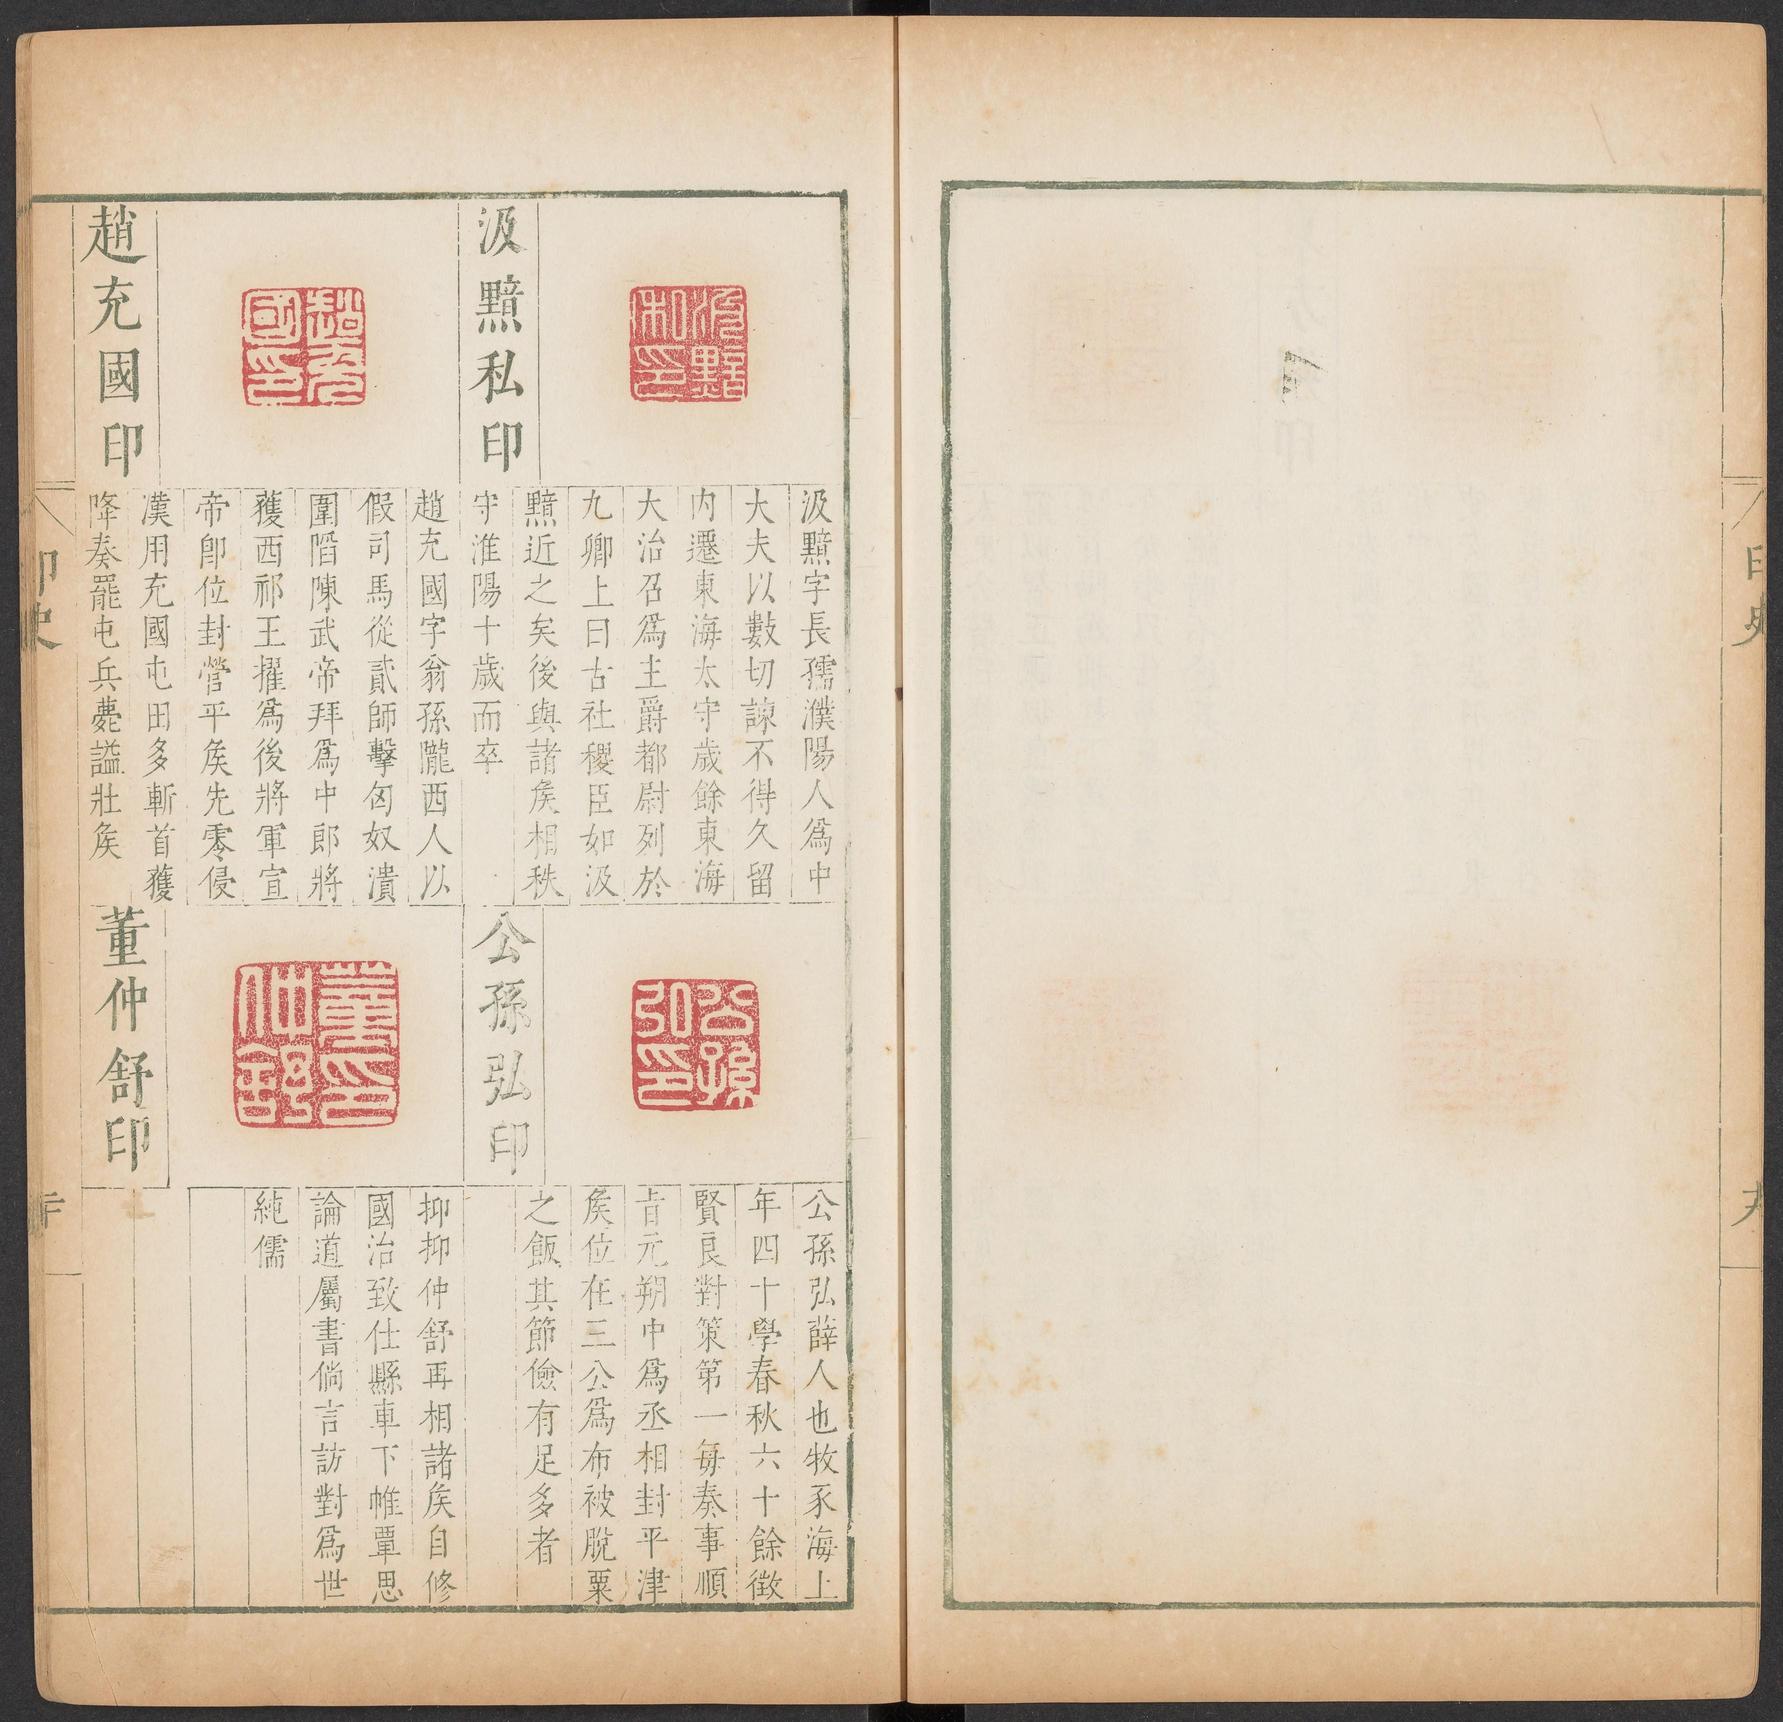 汲黯私印
汲黯字長孺濮陽人爲中
大夫以數切諫不得久留
内遷東海太守歲餘東海
大治召爲主爵都尉列於
九卿上曰古社稷臣如汲
黯近之矣後與諸矦相秩
守淮陽十歲而卒
趙充國印
趙充國字翁孫隴西人以
假司馬從貳師擊匈奴潰
圍䧟陳武帝拜爲中郎將
獲西祁王擢爲後將軍宣
帝卽位封營平矦先零侵
漢用充國屯田多斬首獲
降奏罷屯兵薨謚壯矦
公孫弘印
公孫弘薛人也牧豕海上
年四十學春秋六十餘徵
賢良對策第一每奏事順
㫖元朔中爲丞相封平津
矦位在三公爲布被脫粟
之飯其節儉有足多者
董仲舒印
抑抑仲舒再相諸矦自修
國治致仕縣車下帷覃思
論道屬書倘言訪對爲世
純儒
印史
印史